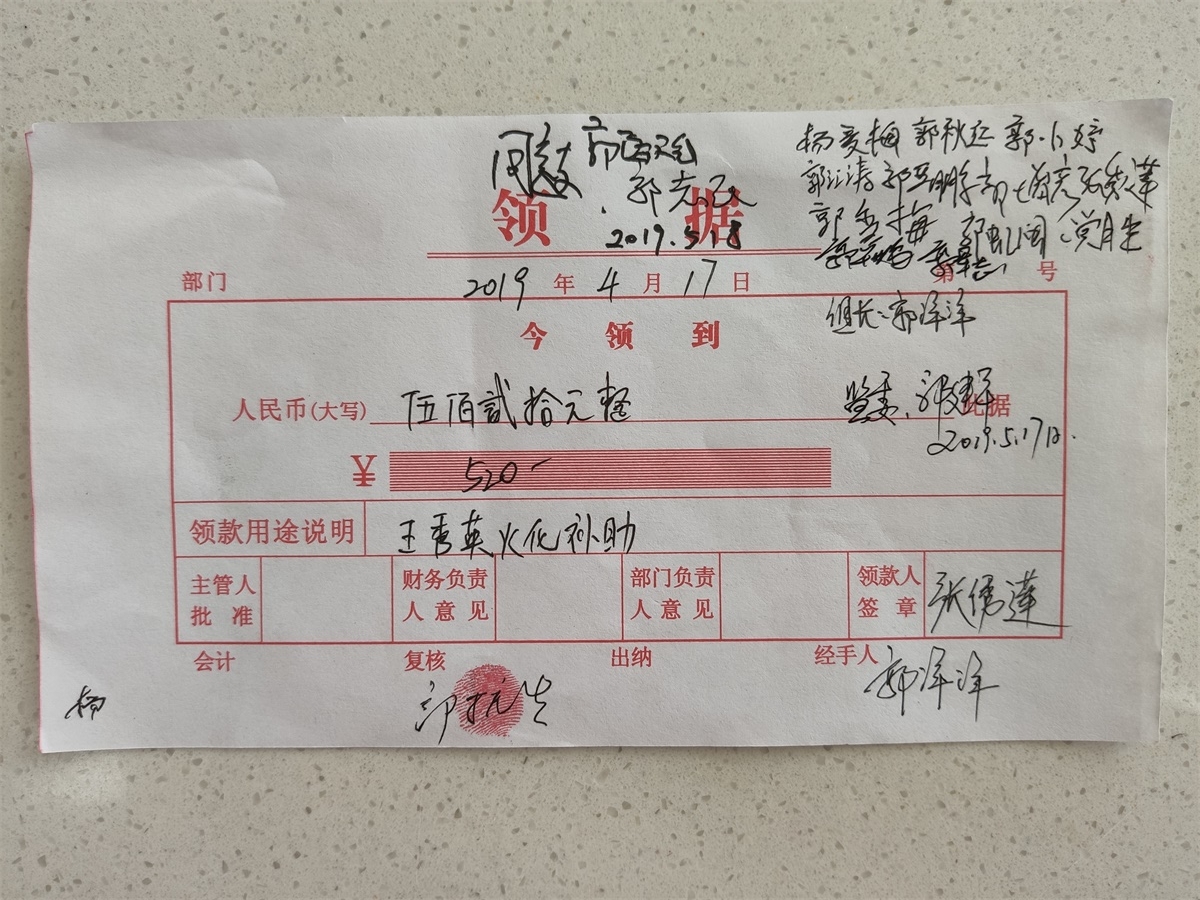 同意 郭
郭志民
2019.5.18
杨爱梅 郭秋红 郭小婷
郭江涛 郭亚鹏
郭秀梅 党月
领据
部门 2019年4月17日 第 号
组长:郭洋洋
今领到
人民币(大写) 伍佰贰拾元整 此据
监委:郭
2019.5.17日.
¥ 520-
领款用途说明 王秀英火化补助
主管人批准 财务负责人意见 部门负责人意见 领款人签章 张绣莲
会计 复核 出纳 经手人
郭洋洋
杨